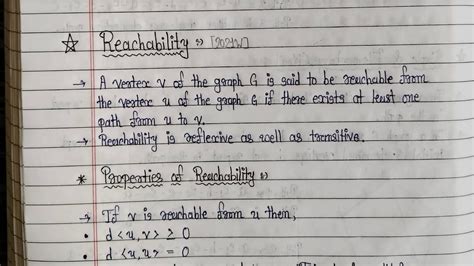 ☆ Reachability :)
→ A vertex v of the graph G is said to be reachable from
the vertex u of the graph G if there exists at least one
path from u to v.
→ Reachability is reflexive as well as transitive.
* Properties of Reachability :)
→ If v is reachable from u then,
• d<u,v> ≥ 0
• d<u,u> = 0